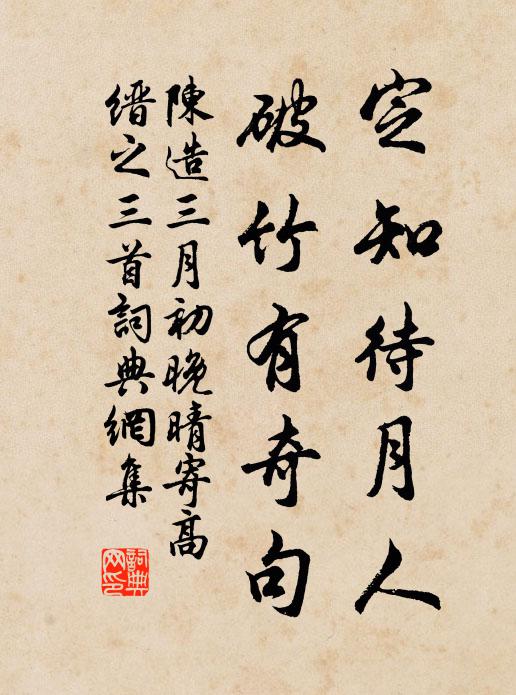 定知待月人
破竹有奇句
陳造三月初晚晴寄高
縉之三首詞典網集
詞典网印